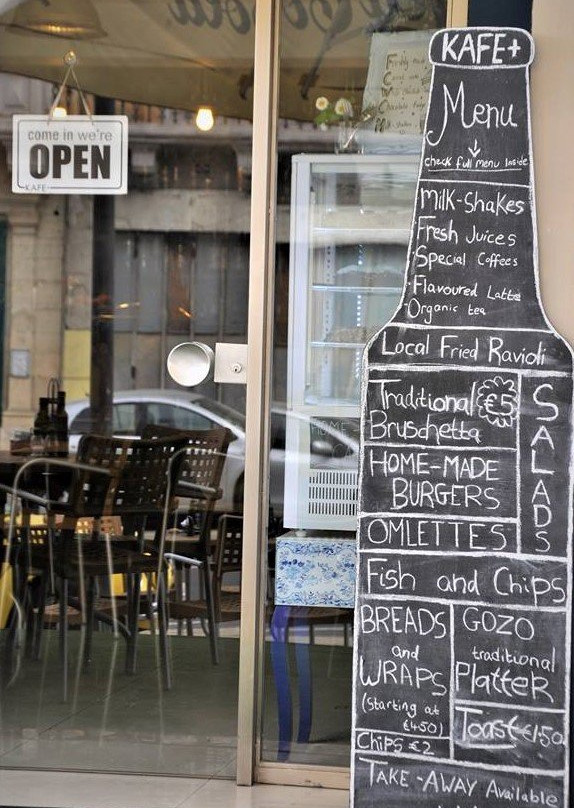 come in we're
OPEN
KAFE
KAFE+
Menu
check full menu inside
Milk-Shakes
Fresh Juices
Special Coffees
Flavoured Latte
Organic tea
Local Fried Ravioli
Traditional €5
Bruschetta
SALADS
HOME-MADE
BURGERS
OMLETTES
Fish and Chips
BREADS
and
WRAPS
(starting at
€450)
Chips €2
GOZO
traditional
Platter
Toast €1.50
TAKE-AWAY Available